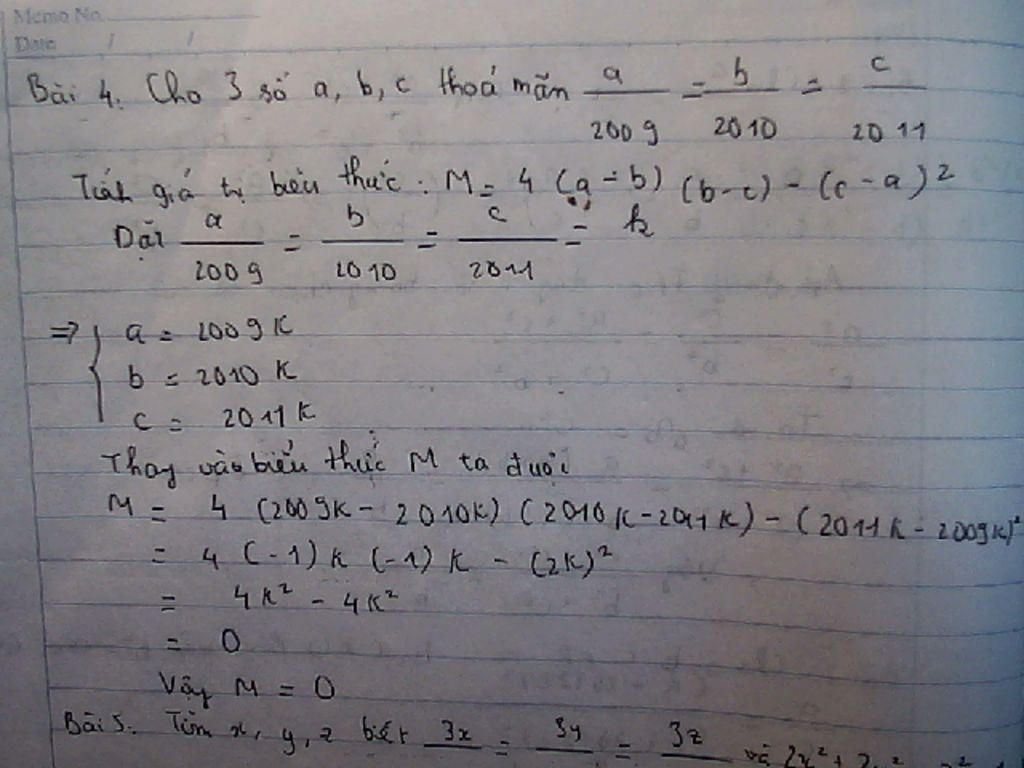 Memo No.
Date / /
Bài 4. Cho 3 số a, b, c thoả mãn a/2009 = b/2010 = c/2011
Tính giá trị biểu thức: M = 4 (a - b) (b - c) - (c - a)²
Đặt a/2009 = b/2010 = c/2011 = k
=> { a = 2009K
b = 2010 K
c = 2011 K
Thay vào biểu thức M ta được
M = 4 (2009K - 2010K) (2010K - 2011K) - (2011K - 2009K)²
= 4 (-1) K (-1) K - (2K)²
= 4K² - 4K²
= 0
Vậy M = 0
Bài 5. Tìm x, y, z biết 3x = 3y = 3z và 2x² +